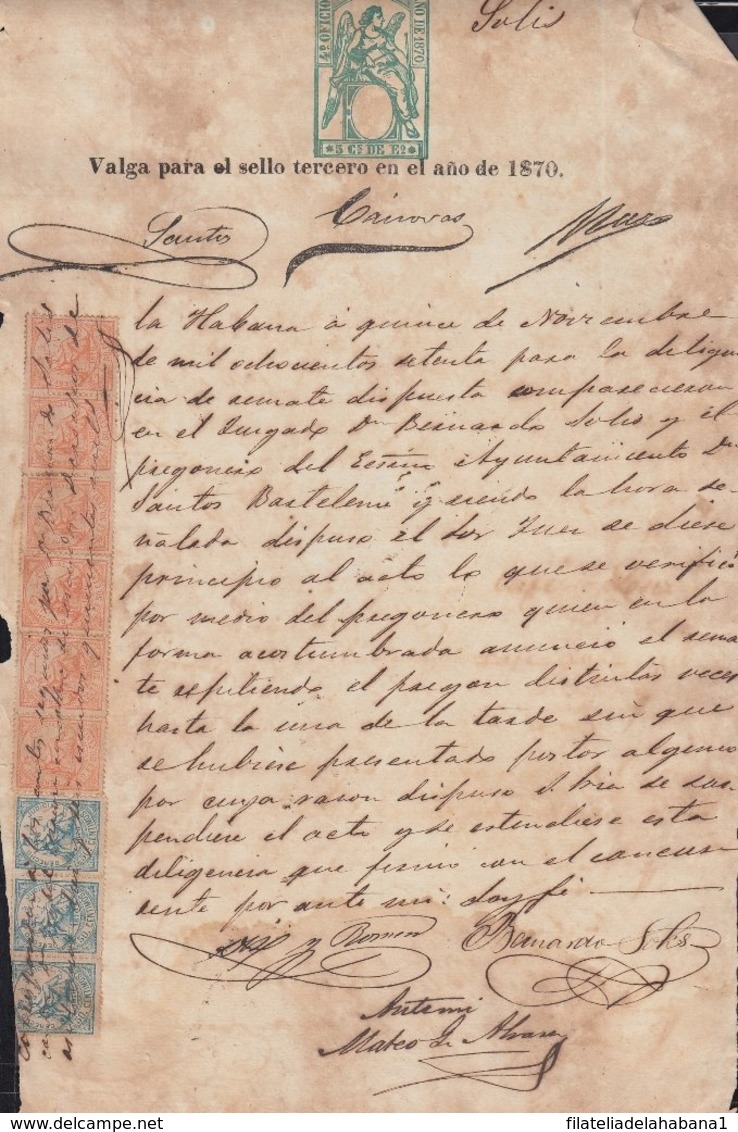 Solis
4º OFICIO AÑO DE 1870
5 Cs DE Eo
Valga para el sello tercero en el año de 1870.
Santos Cánovas
La Habana á quince de Noviembre
de mil ochocientos setenta para la diligen
cia de remate dispuesta comparecieron
en el Juzgado Dn Bernardo Solis y el
pregonero del Ecsmo Ayuntamiento Dn
Santos Bartelemi y siendo la hora se-
ñalada dispuso el Sor Juez se diese
principio al acto lo que se verificó
por medio del pregonero quien en la
forma acostumbrada anunció el rema
te repitiendo el pregon distintas veces
hasta la una de la tarde sin que
se hubiese presentado postor alguno
por cuya razon dispuso S. Sria se sus
pendiese el acto y se estendiese esta
diligencia que firmó con el concur
rente por ante mi: doy fé
y Romero Bernardo Solis
Antemi
Mateo G. Alvarez
filateliadelahabana1